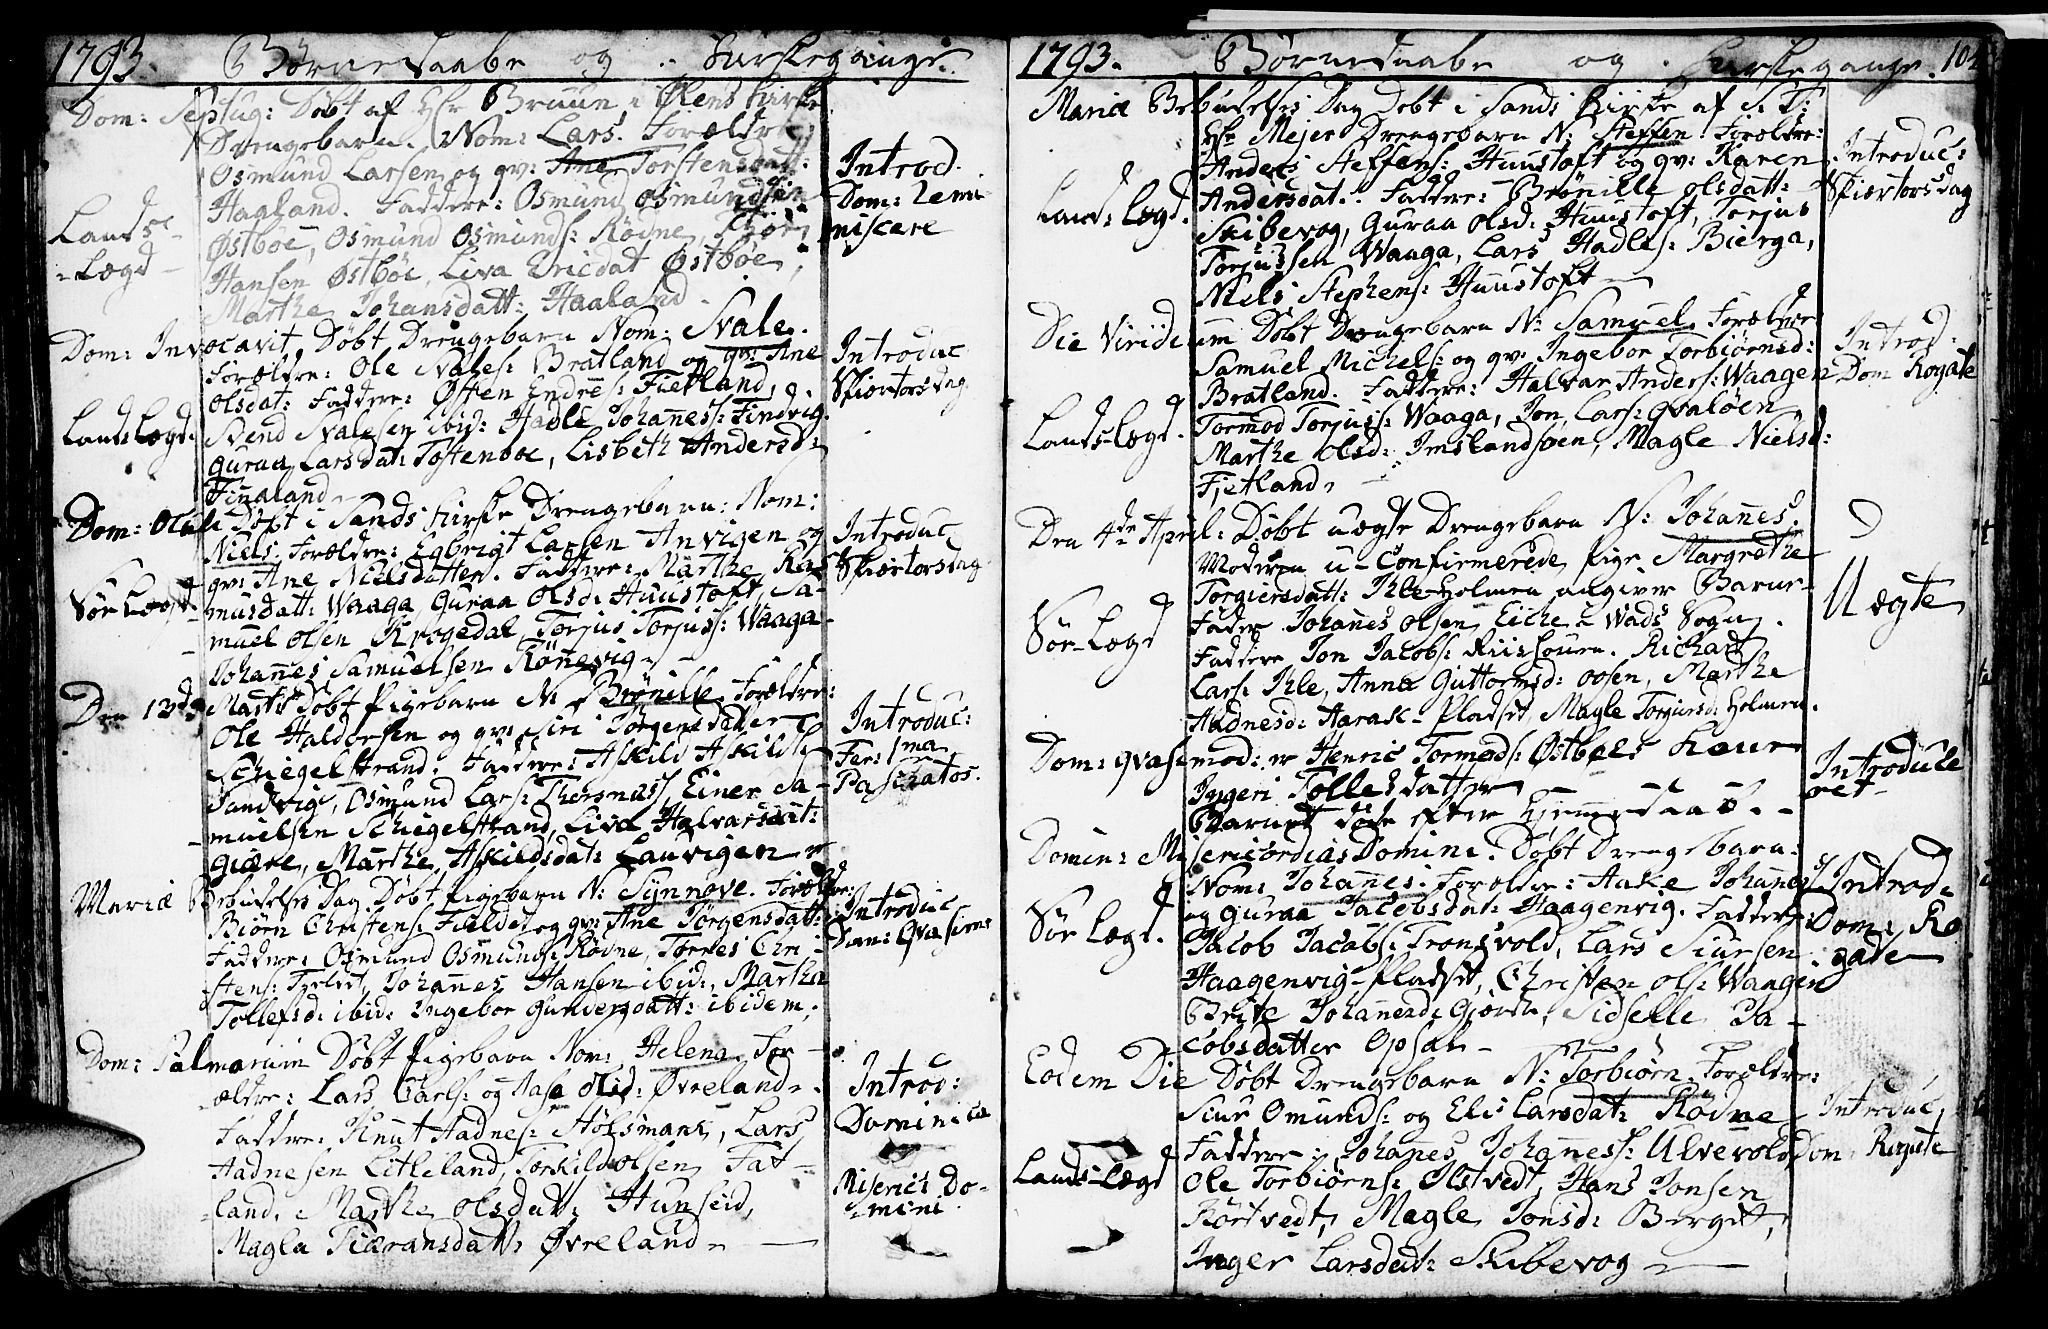 1793. Børnedaabe og Kirkegange.
Dom: Septug: Døbt af Hr Bruun i Ølens Kirke
Drengebarn. Nom: Lars. Forældre:
Osmund Larsen og qv: Ane Torstensdatt:
Hagland. Faddere: Osmund Osmundsen
Østböe, Osmund Osmunds: Rödne,
Hansen Østböe, Liva Ericdat Østböe,
Marthe Johansdatt: Haaland.
Lands-
-Lægd-
Introd.
Dom: Remi-
niscere
Dom: Invocavit, Døbt Drengebarn Nom: Svale.
Forældre: Ole Svales: Bratland og qv: Ane
Olsdat: Faddere: Østen Endres: Fietland,
Svend Svalesen ibid: Hadle Johanness: Findvig.
Guraa Larsdat: Tostenboe, Lisbeth Andersd:
Finaland-
Lands Lægd.
Introduc
Skiertorsdag
Dom: Oculi Døbt i Sands Kirke Drengebarn: Nom:
Niels. Forældre: Egbrigt Larsen Anvigen og
qv: Ane Nielsdatter. Faddere: Marthe Ras-
musdatt: Waaga, Guraa Olsd: Huustoft, Sa-
muel Olsen Krogedal, Torjus Torjuss: Waaga
Johannes Samuelsen Rönevig-
Sör Lægd.
Introduc
Skiertorsdag
Den 12de Marti Døbt Pigebarn N: Brönille Forældre:
Ole Haldorsen og qv: Siri Jörgensdatter
Schiegelstrand. Faddere: Askild Askilds:
Sandvig, Osmund Lars: Thorsnæss, Einer Sa-
muelsen Schiegelstrand, Liva Halvarsdatt:
Giære, Marthe Askildsdat: Lauvigen
Introduc:
Fer: 1ma
Paschatos.
Mariæ Bebudelses Dag Døbt Pigebarn N: Synnove. Forældre:
Biörn Christens: Fieldet og qv: Ane Jörgensdatt:
Faddere: Osmund Osmunds: Rödne, Torres Chri-
stens: Fieldet, Johannes Hansen ibid:, Martha
Tollefsd: ibid: Ingebor Gundersdatt: ibidem.
Introduc
Dom: Qvasimo
Dom: Palmarum Døbt Pigebarn Nom: Helena. For-
ældre: Lars Carls: og Aasa Olsd: Øvreland.
Faddere: Knut Aadnes: Hölsmark, Lars
Aadnesen Litleland, Torkild Olsen Fat-
land, Marthe Olsdatt: Hunseid,
Magla Tiæransdatt: Øvreland-
Introd:
Dominica
Misericl Do-
mini
1793. Børnedaabe og Kirkegange. 104
Mariæ Bebudelses Dag Døbt i Sands Kirke af S. T:
Hr Mejer Drengebarn N: Steffen. Forældre:
Anders Steffens: Huustoft og qv: Karen
Andersdat: Faddere: Brönille Olsdatt:
Skibevog, Guraa Olsd: Huustoft, Torjus
Torjussen Waaga, Lars Hadles: Bierga,
Niels Stephens: Huustoft
Lands Lægd.
Introduc:
Skiertorsdag
Die Viridium Døbt Drengebarn N: Samuel. Forældre
Samuel Michels: og qv: Ingebor Torbiörnsd:
Bratland. Faddere: Halvar Anders: Waagen
Tormod Torjuss: Waaga, Jon Lars: Qvalöen
Marthe Olsd: Imslandsöen, Magle Nielsd:
Fjetland.
Lands Lægd.
Introd:
Dom Rogate
Den 4de April: Døbt uægte Drengebarn N: Johannes.
Moderen u-Confirmerede Pige Margrethe
Torgiersdatt: Ihle-Holmen angiver Barne-
Fader Johannes Olsen Eiche i Wads Sogn.
Faddere Jon Jacobs: Riissöuen. Richard
Lars: Ihle, Anna Guttormsd: Oosen, Marthe
Aadnesd: Aarak-Pladset, Magle Torgiersd: Holmen.
Sör-Lægd
Uægte
Dom: Qvasimod: Henric Tormods: Østböes Kone
Ingeri Tollesdatter
Barnet døde efter Hjemmedaab.
Introduce
ret
Domin: Misericordias Domini. Døbt Drengebarn:
Nom: Johannes. Forældre: Aake Johannes:
og Guraa Jacobsdat: Haagenvig. Faddere:
Jacob Jacobs: Tronsvold, Lars Siursen
Haagenvig-Pladset, Christen Ols: Waagen
Brite Johannesd: Giærde, Sidselle Ja-
cobsdatter Opsal-
Sör Lægd.
Introd:
Dom: Ro
gate
Eodem Die Døbt Drengebarn N: Torbiörn. Forældre:
Siur Omunds: og Elis Larsdat: Rödne
Faddere: Johannes Johanness: Ulvevold,
Ole Torbiörns: Ilstvedt, Hans Jonsen
Körtvedt, Magle Jonsd: Berget,
Inger Larsdat: Skibevog
Lands-Lægd
Introduc,
Dom: Rogate